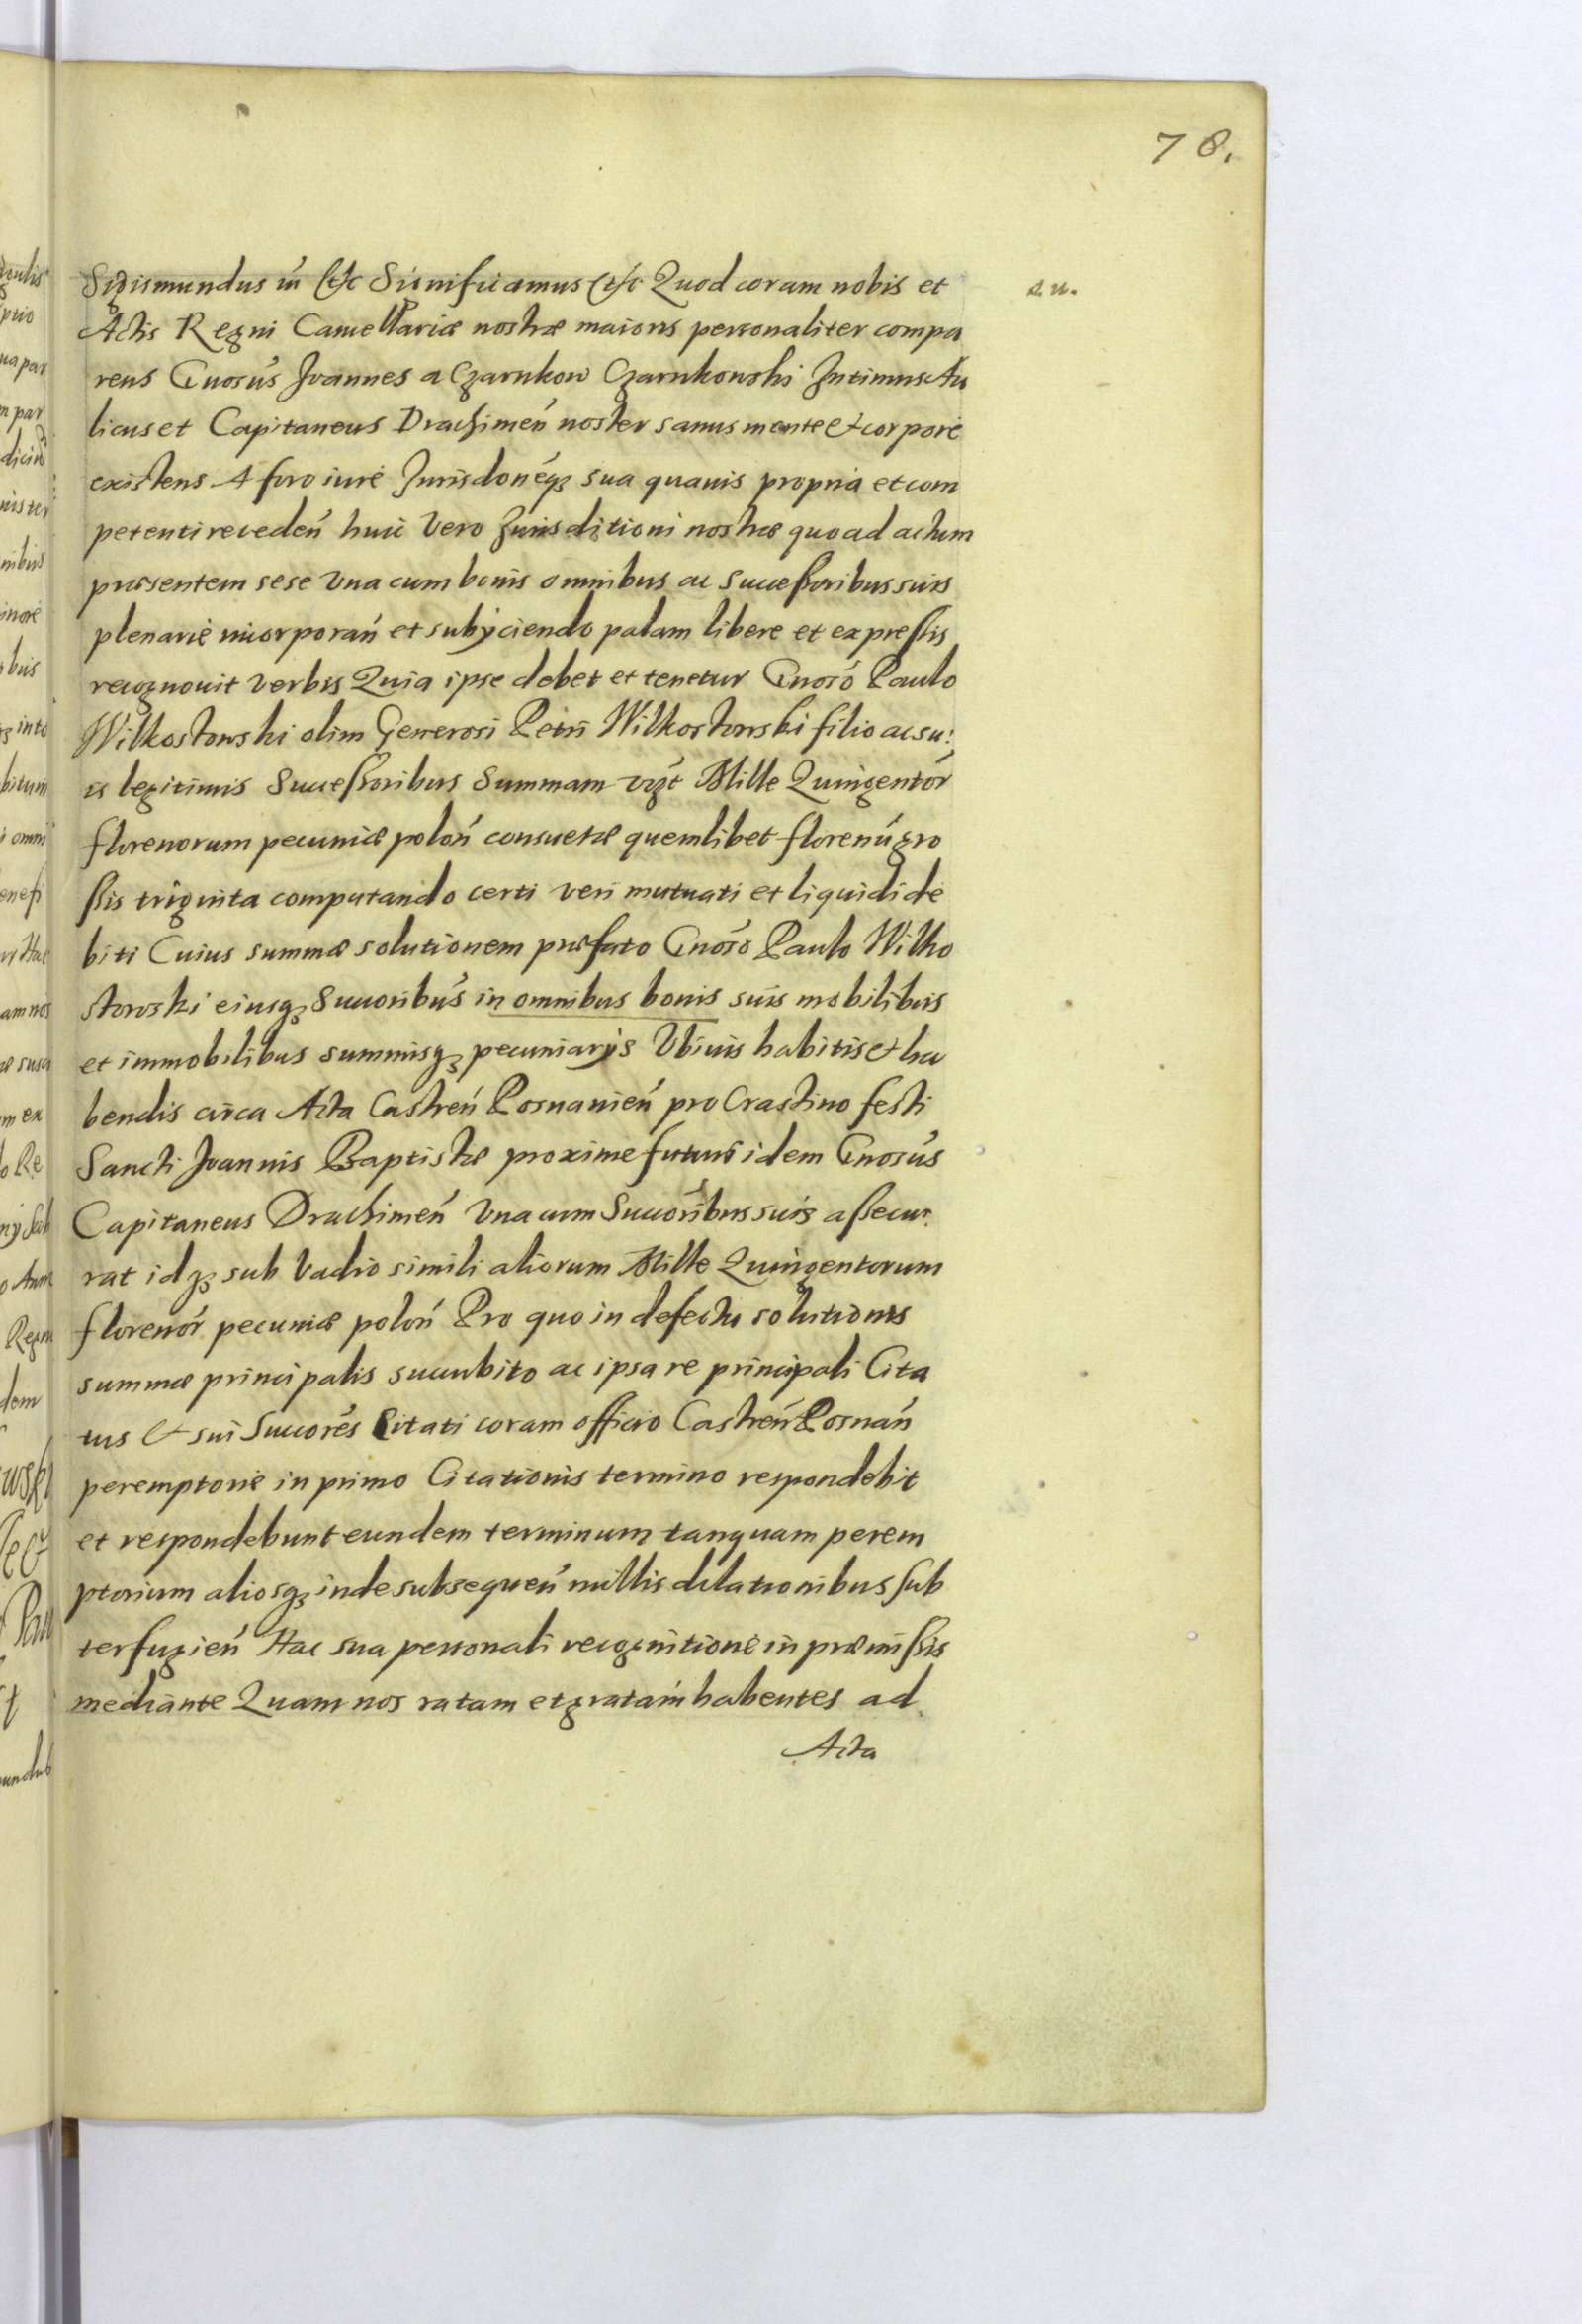 78.
Sigismundus III etc Significamus etc Quod coram nobis et
Actis Regni Cancellariæ nostræ maioris personaliter compa
rens Gnosús Joannes a Czarnkow Czarnkowski Intimus Au
licus et Capitaneus Drachimeń noster sanus mente et corpore
existens A foro iure Jurisdonéqꝫ sua quauis propria et com
petenti recedeń huic vero Jurisditioni nostræ quoad actum
præsentem sese vna cum bonis omnibus ac Successoribus suis
plenarie incorporań et subijciendo palam libere et expressis
recognouit verbis Quia ipse debet et tenetur Gnosó Paulo
Wilkostowski olim Generosi Petri Wilkostowski filio ac su:
is legitimis Successoribus Summam vzt Mille Quingentór
florenorum pecuniæ polоń consuetæ quemlibet florenú gro
ssis triginta computando certi veri mutuati et liquidi de
biti Cuius summæ solutionem præfato Gnosó Paulo Wilko
stowski eiusqꝫ Succoribús in omnibus bonis suis mobilibus
et immobilibus summisqꝫ pecuniarijs Vbiuis habitis et ha
bendis circa Acta Castreń Posnanień pro Crastino festi
Sancti Joannis Baptistæ proxime futuri idem Gnosús
Capitaneus Drachimeń Vna cum Succoribus suis assecu
rat idqꝫ sub Vadio simili aliorum Mille Quingentorum
florenór pecuniæ poloń Pro quo in defectu solutionis
summæ principalis succubito ac ipsa re principali Cita
tus et sui Succorés Citati coram officio Castreń Posnań
peremptorie in primo Citationis termino respondebit
et respondebunt eundem terminum tanquam perem
ptorium aliosqꝫ inde subsequeń nullis dilationibus sub
terfugień Hac sua personali recognitione in præmissis
mediante Quam nos ratam et gratam habentes ad
Acta